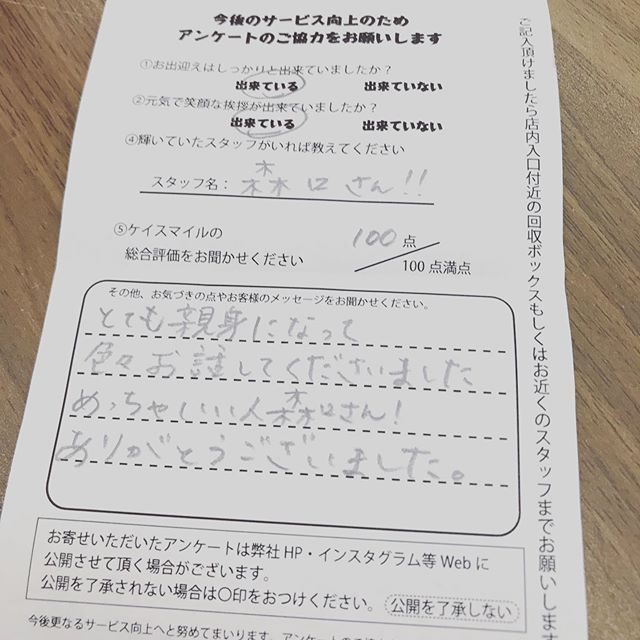 今後のサービス向上のため
アンケートのご協力をお願いします
①お出迎えはしっかりと出来ていましたか？
出来ている 出来ていない
②元気で笑顔な挨拶が出来ていましたか？
出来ている 出来ていない
④輝いていたスタッフがいれば教えてください
スタッフ名： 森口さん!!
⑤ケイスマイルの
総合評価をお聞かせください
100 点
100 点満点
その他、お気づきの点やお客様のメッセージをお聞かせください。
とても親身になって
色々お話してくださいました
めっちゃいい人森口さん!
ありがとうございました。
お寄せいただいたアンケートは弊社 HP・インスタグラム等 Web に
公開させて頂く場合がございます。
公開を了承されない場合は〇印をおつけください。 公開を了承しない
今後更なるサービス向上へと努めてまいります。アンケートの
ご記入頂けましたら店内入口付近の回収ボックスもしくはお近くのスタッフまでお願いします